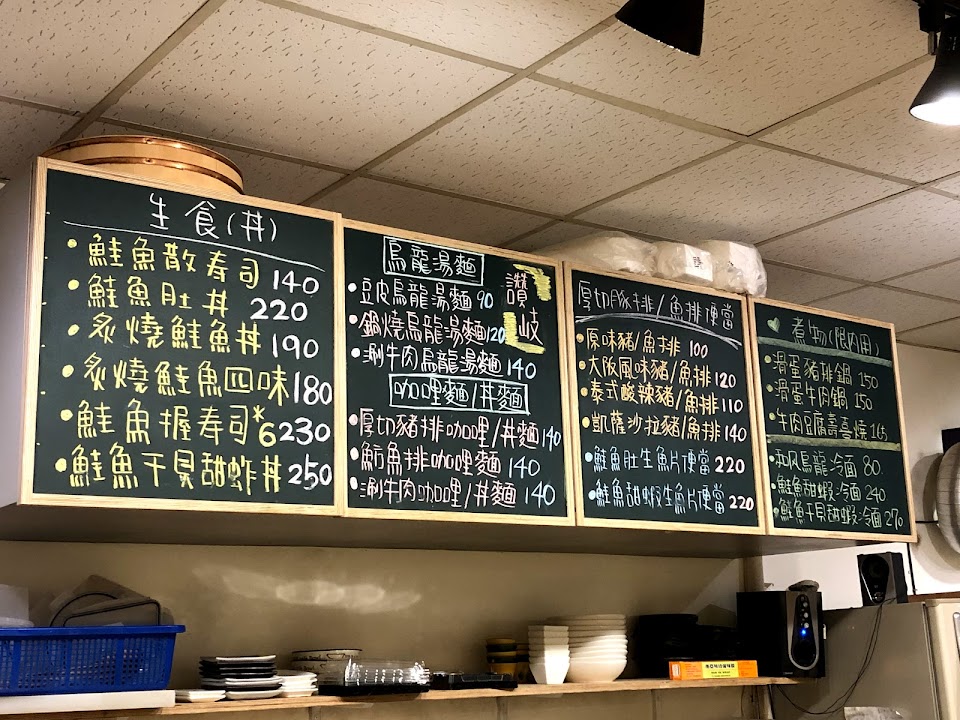 生食(丼)
鮭魚散寿司 140
鮭魚肚丼 220
炙燒鮭魚丼 190
炙燒鮭魚四味 180
鮭魚握寿司*6 230
鮭魚干貝甜蚱丼 250
烏龍湯麵
讚岐
豆皮烏龍湯麵 90
鍋燒烏龍湯麵 120
涮牛肉烏龍湯麵 140
咖哩麵/丼麵
厚切豬排咖哩/丼麵 140
魴魚排咖哩麵 140
涮牛肉咖哩/丼麵 140
厚切豚排/魚排便當
原味豬/魚排 100
大阪風味豬/魚排 120
泰式酸辣豬/魚排 110
凱薩沙拉豬/魚排 140
鮭魚肚生魚片便當 220
鮭魚甜蝦生魚片便當 220
煮物(限內用)
滑蛋豬排鍋 150
滑蛋牛肉鍋 150
牛肉豆腐壽喜燒 165
和风烏龍冷面 80
鮭魚甜蝦冷面 240
鮭魚干貝甜蝦冷面 270